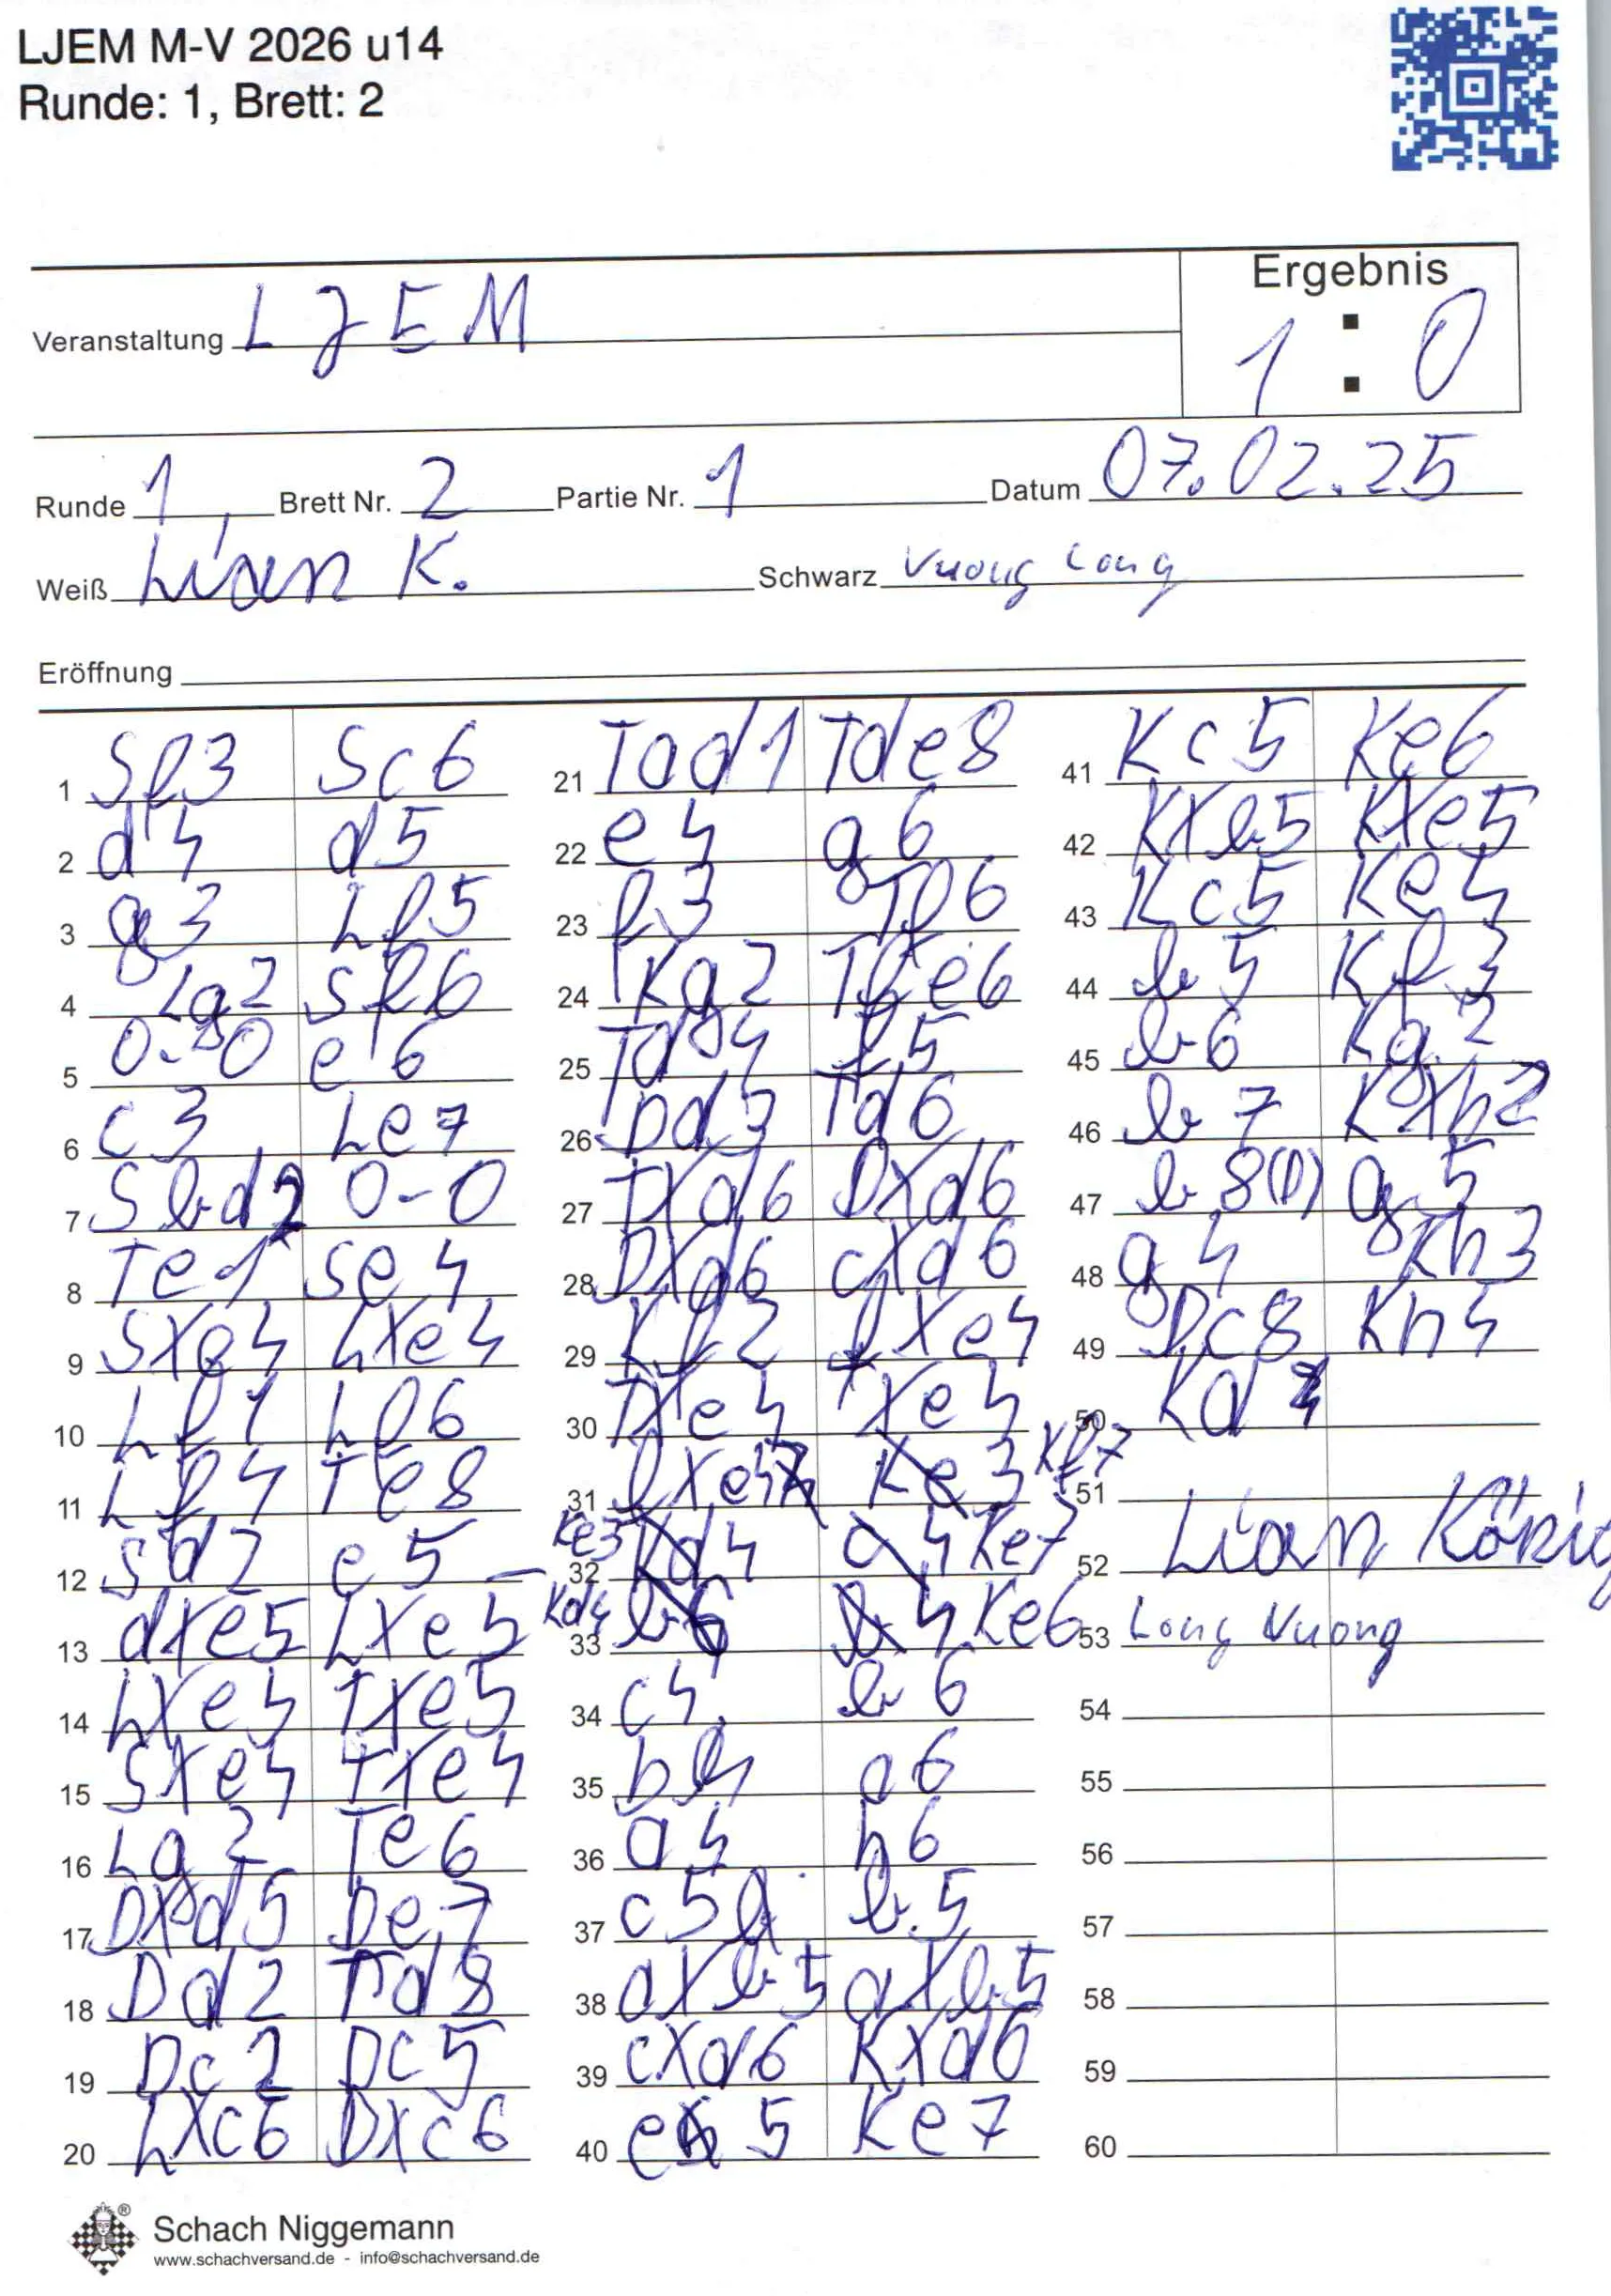 LJEM M-V 2026 u14
Runde: 1, Brett: 2
Ergebnis
1 : 0
Veranstaltung LJEM
Runde 1 Brett Nr. 2 Partie Nr. 1 Datum 07.02.25
Weiß Lian K. Schwarz Vuong Long
Eröffnung
1 Sf3 Sc6
2 d4 d5
3 g3 Lf5
4 Lg2 Sf6
5 0-0 e6
6 c3 Le7
7 Sbd2 0-0
8 Te1 Se4
9 SXe4 LXe4
10 Lf1 Lf6
11 Lf4 Te8
12 Sd2 e5
13 dXe5 LXe5
14 LXe5 TXe5
15 SXe4 TXe4
16 Lg2 Te6
17 DXd5 De7
18 Dd2 Td8
19 Dc2 Dc5
20 LXc6 DXc6
21 Tad1 Tde8
22 e4 g6
23 f3 Tf6
24 Kg2 Tfe6
25 Td4 f5
26 Dd3 Td6
27 TXd6 DXd6
28 DXd6 cXd6
29 Kf2 fXe4
30 TXe4 TXe4
31 fXe4 Kf7
32 Ke3 Ke7
33 Kd4 Ke6
34 c4 b6
35 b4 a6
36 a4 h6
37 c5 b5
38 aXb5 aXb5
39 cXd6 KXd6
40 e5 Ke7
41 Kc5 Ke6
42 KXb5 KXe5
43 Kc5 Ke4
44 b5 Kf3
45 b6 Kg2
46 b7 KXh2
47 b8(D) g5
48 g4 Kh3
49 Dc8 Kh4
50 Kd4
51
52 Lian König
53 Long Vuong
54
55
56
57
58
59
60
Schach Niggemann
www.schachversand.de - info@schachversand.de